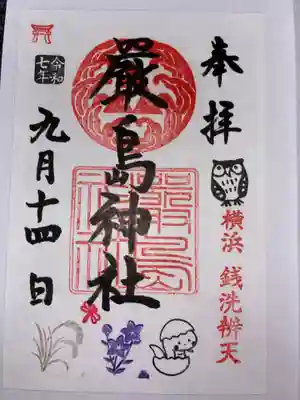 奉拝
横浜 銭洗辨天
嚴島神社
令和
七年
九月十四日